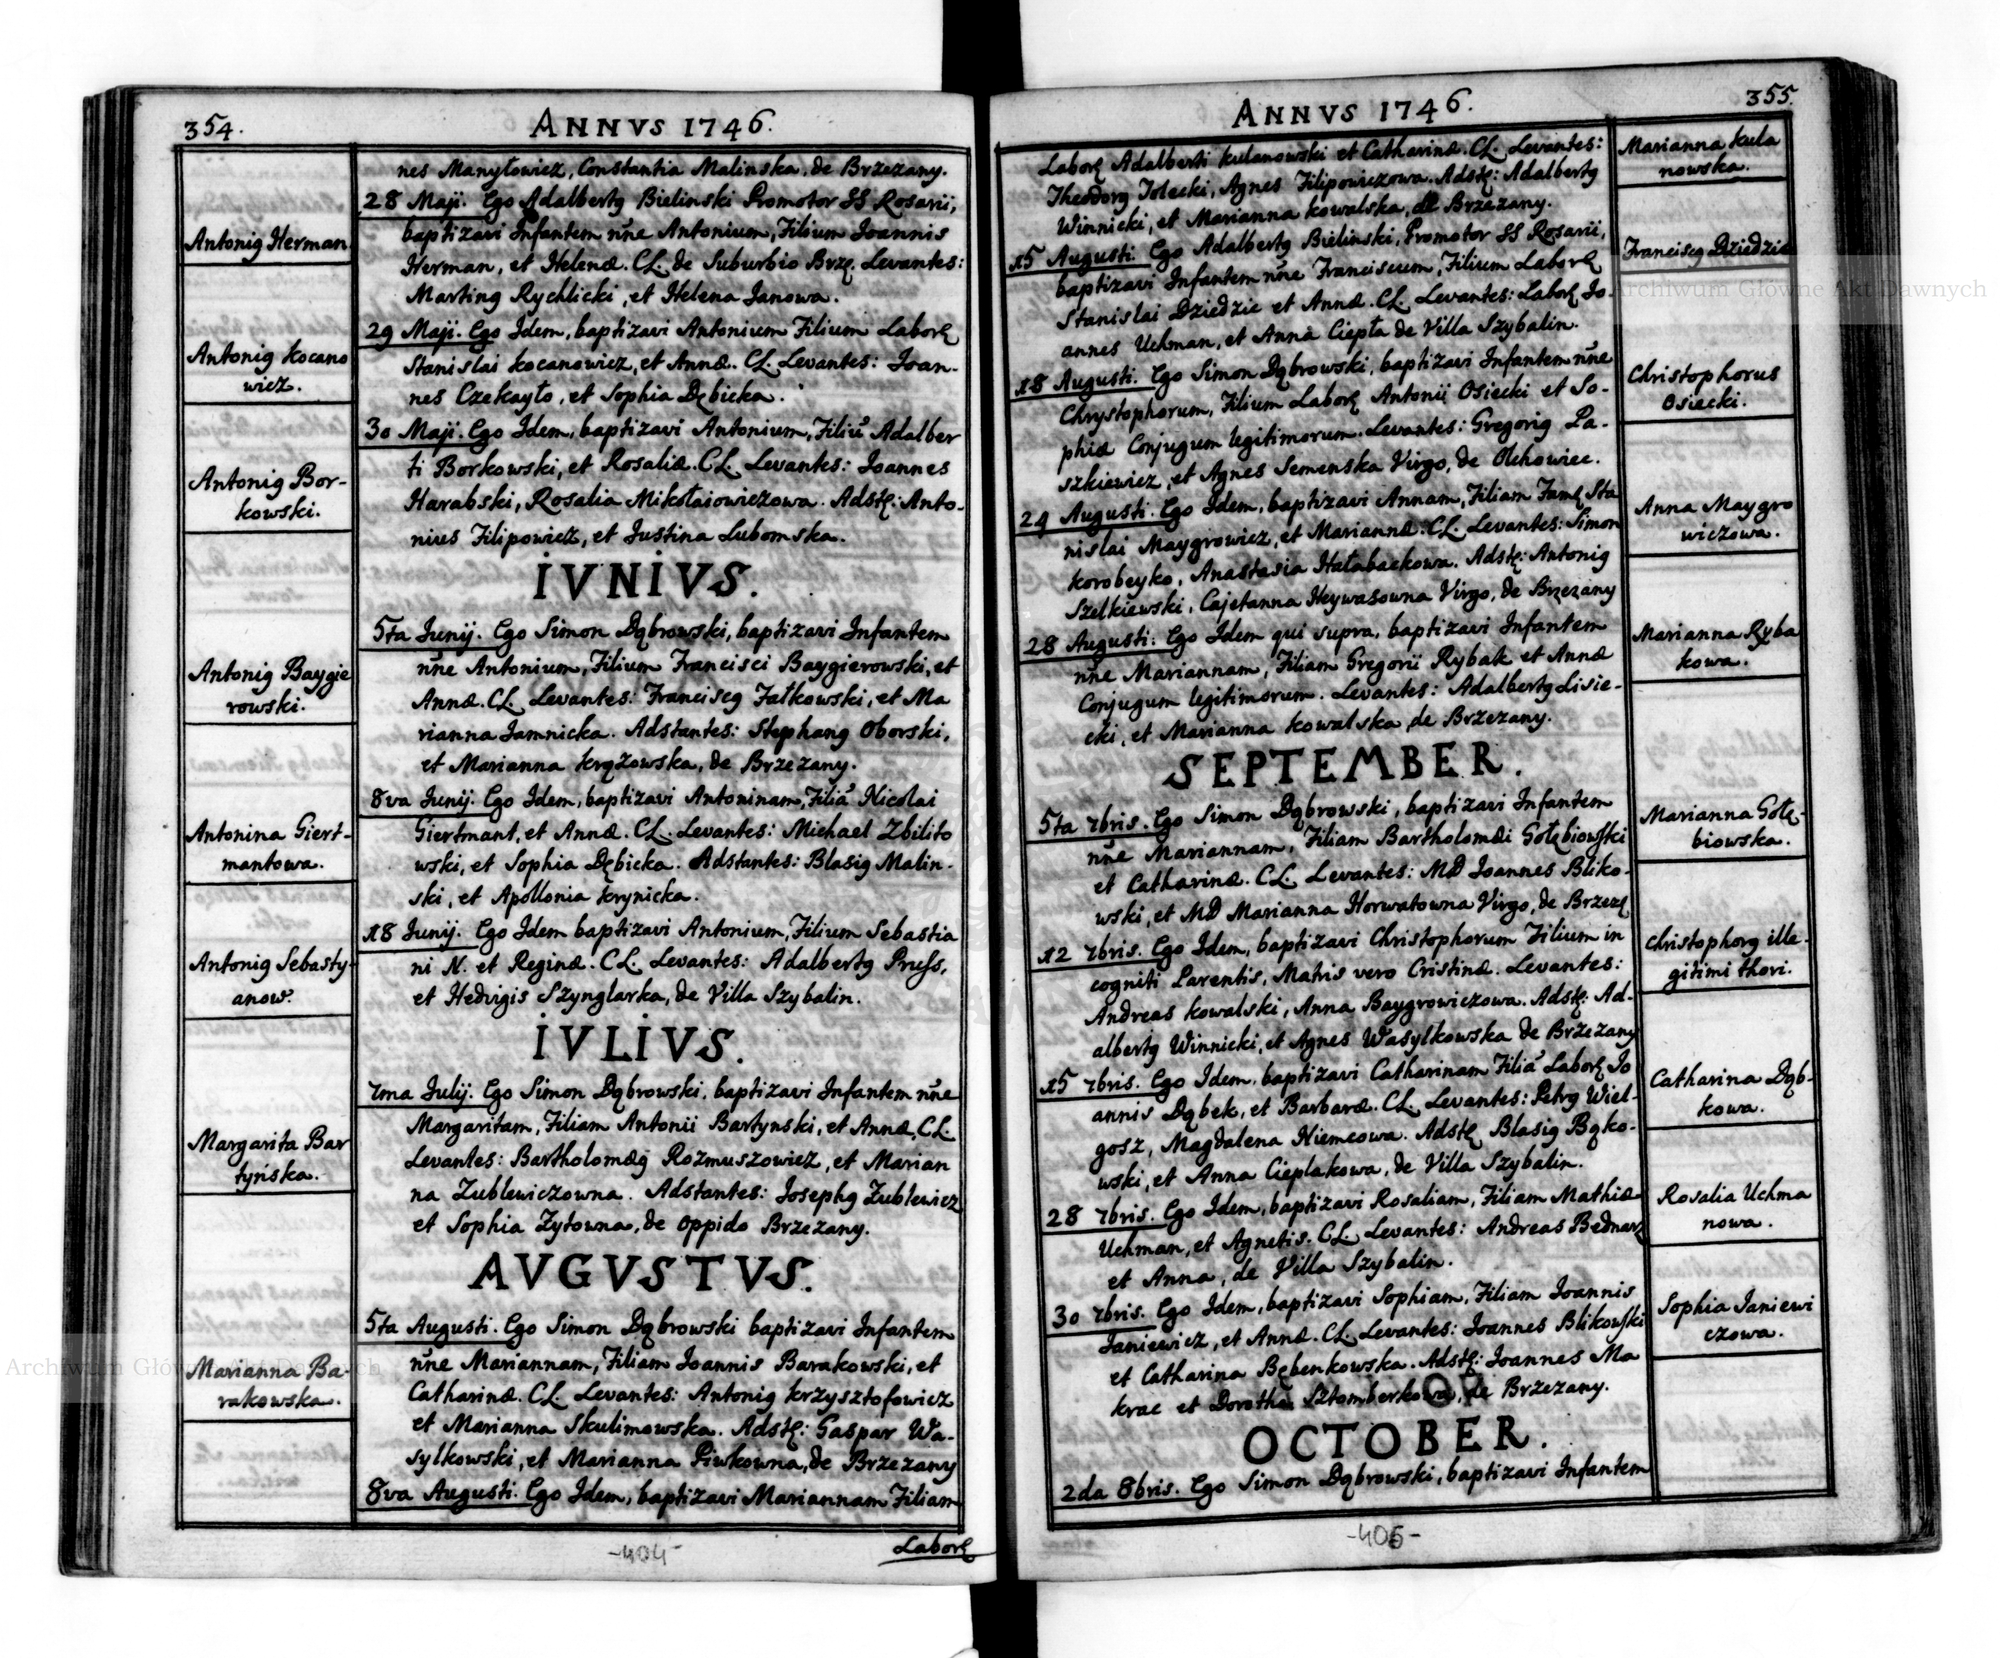 354.
ANNVS 1746.
nes Manyłowicz, Constantia Malinska, de Brzezany.
28 Maji. Ego Adalbertq Bielinski Promotor SS Rosarii,
baptizavi Infantem nn̄e Antonium, Filium Joannis
Herman, et Helenæ. CL. de Suburbio Brzę. Levantes:
Martinq Rychlicki, et Helena Janowa.
29 Maji. Ego Idem, baptizavi Antonium Filium Laborę
Stanislai Kocanowicz, et Annæ. CL. Levantes: Joan-
nes Czekayło, et Sophia Dębicka.
30 Maji. Ego Idem, baptizavi Antonium, Filiū Adalber
ti Borkowski, et Rosaliæ. CL. Levantes: Joannes
Harabski, Rosalia Mikołaiowiczowa. Adstę: Anto-
nius Filipowicz, et Justina Lubomska.
IVNIVS.
5ta Junij. Ego Simon Dąbrowski, baptizavi Infantem
nn̄e Antonium, Filium Francisci Baygierowski, et
Annæ. CL. Levantes: Franciscq Fatkowski, et Ma
rianna Jamnicka. Adstantes: Stephanq Oborski,
et Marianna Krązowska, de Brzezany.
8va Junij. Ego Idem, baptizavi Antoninam, Filiā Nicolai
Giertmant, et Annæ. CL. Levantes: Michael Zbilito
wski, et Sophia Dębicka. Adstantes: Blasiq Malin-
ski, et Apollonia Krynicka.
18 Junij. Ego Idem baptizavi Antonium, Filium Sebastia
ni N. et Reginæ. CL. Levantes: Adalbertq Preſs,
et Hedvigis Szynglarka, de Villa Szybalin.
IVLIVS.
7ma Julij. Ego Simon Dąbrowski, baptizavi Infantem nn̄e
Margaritam, Filiam Antonii Bartynski, et Annæ, CL.
Levantes: Bartholomæq Rozmuszowicz, et Marian
na Zublewiczowna. Adstantes: Josephq Zublewicz
et Sophia Zytowna, de oppido Brzezany.
AVGVSTVS.
5ta Augusti. Ego Simon Dąbrowski baptizavi Infantem
nn̄e Mariannam, Filiam Joannis Barakowski, et
Catharinæ. CL. Levantes: Antoniq Krzysztofowicz
et Marianna Skulimowska. Adstę: Gaspar Wa-
sylkowski, et Marianna Piwkowna, de Brzezany
8va Augusti. Ego Idem, baptizavi Mariannam Filiam
Laborę
-404-
Antoniq Herman
Antoniq Kocano
wicz.
Antoniq Bor-
kowski.
Antoniq Baygie
rowski.
Antonina Giert-
mantowa.
Antoniq Sebasty-
anow.
Margarita Bar
tynska.
Marianna Ba-
rakowska.
ANNVS 1746.
355.
Laborę Adalberti Kulanowski et Catharinæ. CL. Levantes:
Theodorq Tolecki, Agnes Filipowiczowa. Adstę: Adalbertq
Winnicki, et Marianna Kowalska, de Brzezany.
15 Augusti. Ego Adalbertq Bielinski, Promotor SS Rosarii,
baptizavi Infantem nn̄e Franciscum, Filium Laborę
Stanislai Dziedzic et Annæ. CL. Levantes: Laborę Jo
annes Uchman, et Anna Ciepła de Villa Szybalin.
18 Augusti. Ego Simon Dąbrowski, baptizavi Infantem nn̄e
Chrystophorum, Filium Laborę Antonii Osiecki et So-
phiæ Conjugum legitimorum. Levantes: Gregoriq Pa-
szkiewicz, et Agnes Semenska Virgo, de Olchowiec.
24 Augusti. Ego Idem, baptizavi Annam, Filiam Famę Sta
nislai Maygrowicz, et Mariannæ. CL. Levantes: Simon
Korobeyko, Anastasia Hałabackowa. Adstę: Antoniq
Szelkiewski, Cajetanna Heywasowna Virgo, de Brzezany
28 Augusti: Ego Idem qui supra, baptizavi Infantem
nn̄e Mariannam, Filiam Gregorii Rybak et Annæ
Conjugum legitimorum. Levantes: Adalbertq Lisie-
cki, et Marianna Kowalska, de Brzezany.
SEPTEMBER.
5ta 7bris. Ego Simon Dąbrowski, baptizavi Infantem
nn̄e Mariannam, Filiam Bartholomæi Gołębiowſki
et Catharinæ. CL. Levantes: MD Joannes Bliko-
wski, et MD Marianna Horwatowna Virgo, de Brzezę
12 7bris. Ego Idem, baptizavi Christophorum Filium in
cogniti Parentis, Matris vero Cristinæ. Levantes:
Andreas Kowalski, Anna Baygrowiczowa. Adstę: Ad-
albertq Winnicki, et Agnes Wasylkowska de Brzezany
15 7bris. Ego Idem, baptizavi Catharinam Filiā Laborę Jo
annis Dąbek, et Barbaræ. CL. Levantes: Petrq Wiel-
gosz, Magdalena Niemcowa. Adstę Blasiq Bąko-
wski, et Anna Cieplakowa, de Villa Szybalin.
28 7bris. Ego Idem, baptizavi Rosaliam, Filiam Mathiæ
Uchman, et Agnetis. CL. Levantes: Andreas Bednarz
et Anna, de Villa Szybalin.
30 7bris. Ego Idem, baptizavi Sophiam, Filiam Joannis
Janiewicz, et Annæ. CL. Levantes: Joannes Blikowſki
et Catharina Bębenkowska. Adstę: Joannes Ma
krac et Dorothea Sztomberkowa, de Brzezany.
OCTOBER.
2da 8bris. Ego Simon Dąbrowski, baptizavi Infantem
-405-
Marianna Kula
nowska.
Franciscq Dziedzic
Christophorus
Osiecki.
Anna Maygro
wiczowa.
Marianna Ryba
kowa.
Marianna Gołę-
biowska.
Christophorq ille-
gitimi thori.
Catharina Dąb-
kowa.
Rosalia Uchma
nowa.
Sophia Janiewi
czowa.
Archiwum Główne Akt Dawnych
Archiwum Główne Akt Dawnych